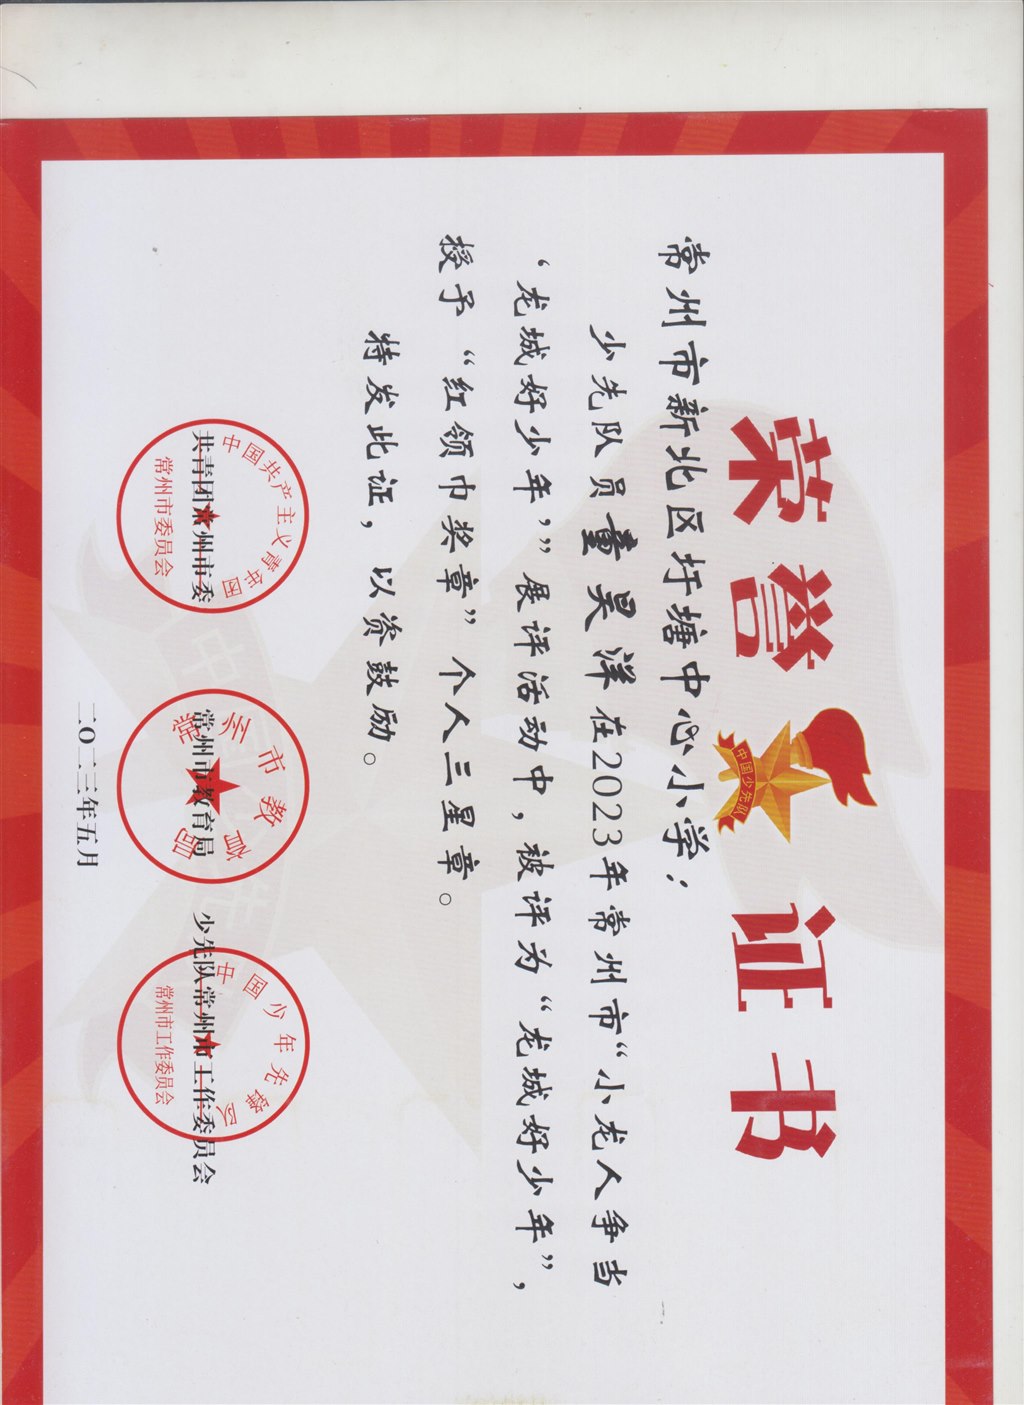 荣誉证书
中国少先队
常州市新北区圩塘中心小学：
少先队员童昊洋在2023年常州市“小龙人争当
‘龙城好少年’”展评活动中，被评为“龙城好少年”，
授予“红领巾奖章”个人三星章。
特发此证，以资鼓励。
共青团常州市委 常州市教育局 少先队常州市工作委员会
中国共产主义青年团
常州市委员会
常州市教育局
中国少年先锋队
常州市工作委员会
二〇二三年五月